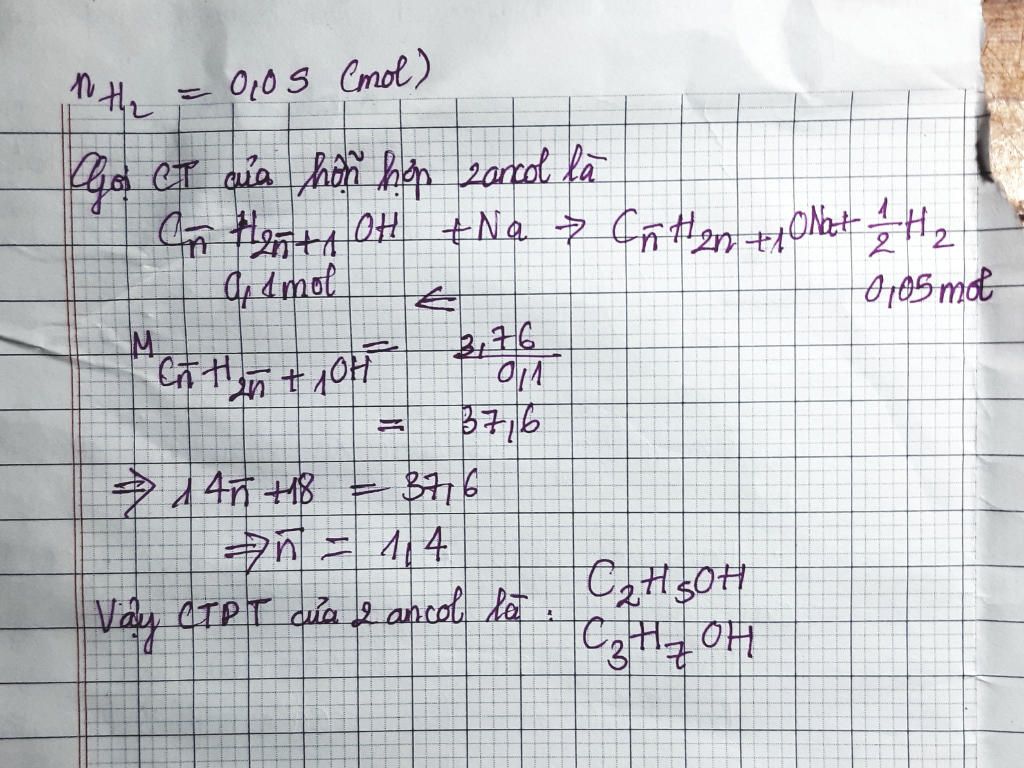 nH2 = 0,05 (mol)
Gọi CT của hỗn hợp 2 ancol là
Cn̄H2n̄+1OH + Na → Cn̄H2n+1ONa + 1/2 H2
0,1mol ← 0,05 mol
MCn̄H2n̄+1OH = 3,76/0,1
= 37,6
⇒ 14n̄ + 18 = 37,6
⇒ n̄ = 1,4
Vậy CTPT của 2 ancol là : C2H5OH
C3H7OH